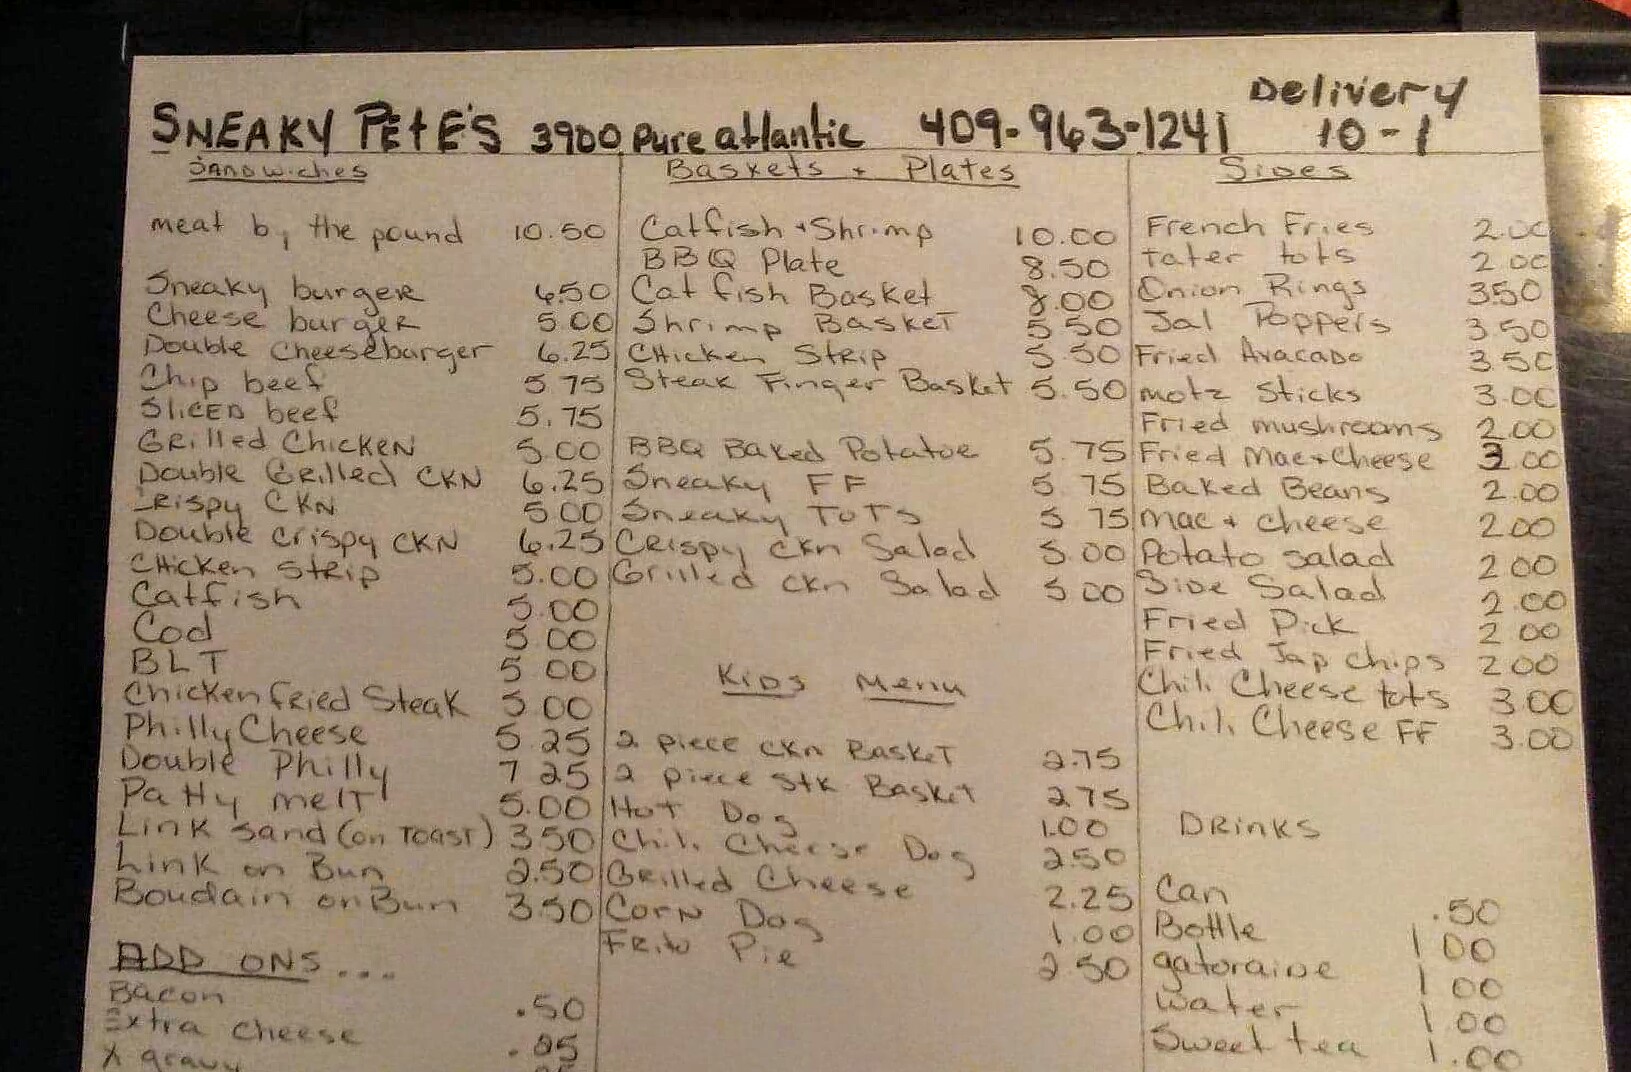 SNEAKY PETE'S 3900 Pure atlantic 409-963-1241 Delivery 10-1
Sandwiches
meat by the pound 10.50
Sneaky burger 6.50
Cheese burger 5.00
Double cheeseburger 6.25
Chip beef 5 75
Sliced beef 5.75
Grilled Chicken 5.00
Double Grilled CKN 6.25
Crispy CKN 5.00
Double crispy CKN 6.25
Chicken strip 5.00
Catfish 5.00
Cod 5 00
BLT 5 00
Chicken fried Steak 5 00
Philly Cheese 5 25
Double Philly 7 25
Patty melt 5.00
Link sand (on TOAST) 3 50
Link on Bun 2.50
Boudain on Bun 3.50
ADD ONS...
Bacon .50
Extra cheese .25
X gravy
Baskets + Plates
Catfish + Shrimp 10.00
BBQ Plate 8.50
Cat fish Basket 8.00
Shrimp Basket 5 50
Chicken Strip 5.50
Steak Finger Basket 5.50
BBQ Baked Potatoe 5.75
Sneaky FF 5 75
Sneaky TOTS 5 75
Crispy Ckn Salad 5.00
Grilled ckn Salad 5 00
Kids Menu
2 piece ckn Basket 2.75
2 piece stk Basket 2 75
Hot Dog 1.00
Chili Cheese Dog 2.50
Grilled Cheese 2.25
Corn Dog 1.00
Frito Pie 2 50
Sides
French Fries 2.00
tater tots 2.00
Onion Rings 3.50
Jal Poppers 3.50
Fried Avacado 3.50
motz Sticks 3.00
Fried mushrooms 2.00
Fried Mac+Cheese 3.00
Baked Beans 2.00
mac + cheese 2.00
Potato salad 2.00
Side Salad 2.00
Fried Pick 2 00
Fried Jap chips 2 00
Chili Cheese tots 3.00
Chili Cheese FF 3.00
DRINKS
Can .50
Bottle 1 00
gatoraide 1 00
water 1 00
Sweet tea 1.00